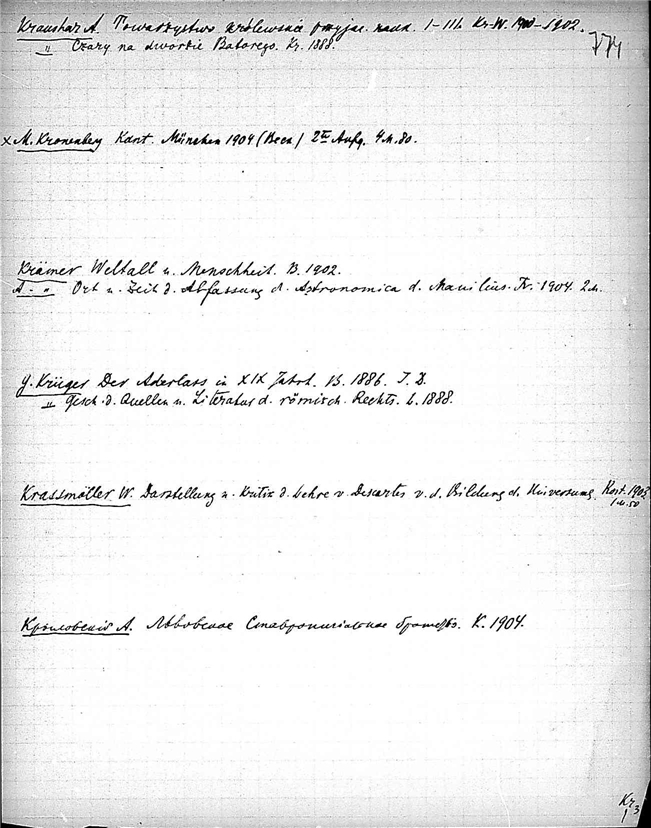 Kraushar A. Towarzystwo królewskie przyjac. nauk. I–III. Kr-W. 1900–1902.
774
" Czary na dworze Batorego. Kr. 1888.
x M. Kronenberg Kant. München 1904 (Beck) 2te Aufg. 4 M. 80.
Krämer Weltall u. Menschheit. B. 1902.
A. " Ort u. Zeit d. Abfassung d. Astronomica d. Manilius. Fr. 1904. 2 M.
G. Krüger Der Aderlass in XIX Jahrh. B. 1886. I. D.
" Gesch. d. Quellen u. Literatur d. römisch. Rechts. L. 1888.
Krassmöller W. Darstellung u. Kritik d. Lehre v. Descartes v. d. Bildung d. Universums. Rost. 1903
1 M. 50
Крыловский А. Львовское Ставропигиальное братство. К. 1904.
Kr
3